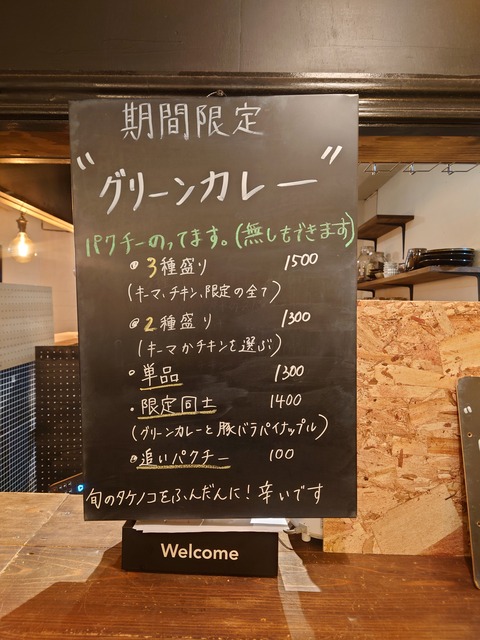 期間限定
"グリーンカレー"
パクチーのってます。(無しもできます)
• 3種盛り 1500
(キーマ、チキン、限定の全て)
• 2種盛り 1300
(キーマかチキンを選ぶ)
• 単品 1300
• 限定同士 1400
(グリーンカレーと豚バラパイナップル)
• 追いパクチー 100
旬のタケノコをふんだんに!辛いです
Welcome